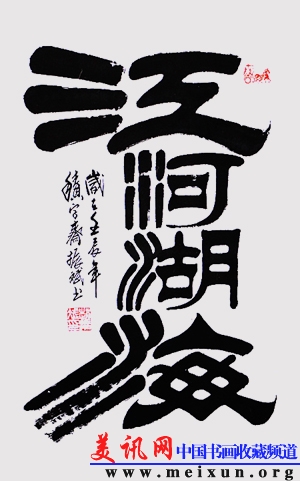 江河湖海
歲在壬辰年
字齋振書
美讯网 中国书画收藏频道
www.meixun.org